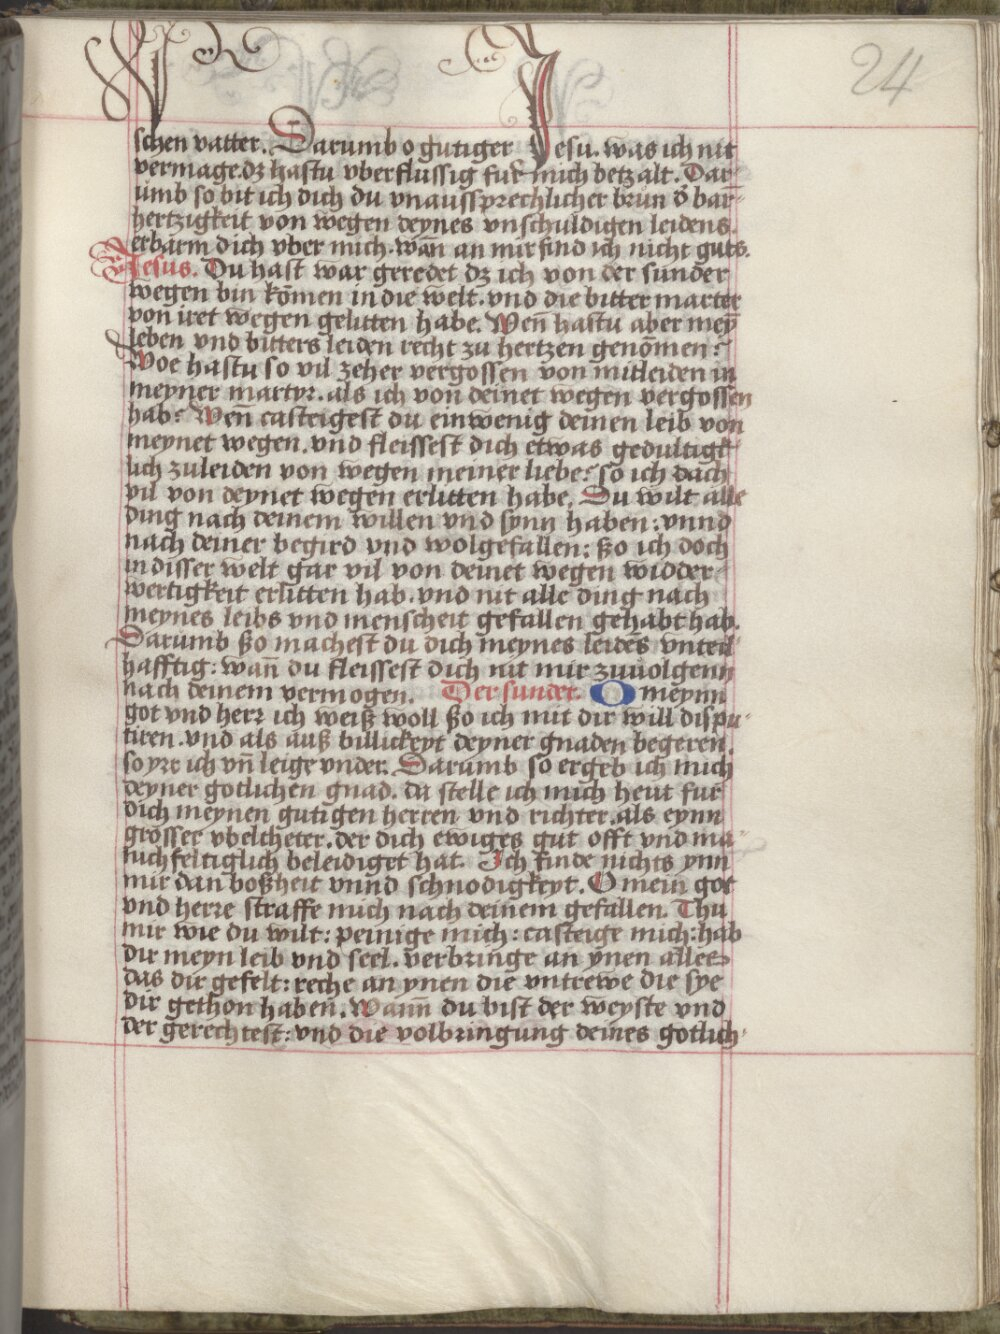 24
schen vatter. Darumb o gutiger Jesu. was ich nit
vermage. dz hastu vberflussig fur mich betzalt. Dar-
umb so bit ich dich du vnaussprechlicher brun d̄ barm̄-
hertzigkeit von wegen deynes vnschuldigen leidens.
erbarm dich vber mich. wan̄ an mir find ich nicht guts.
Jesus. Du hast war geredet dz ich von der sunder
wegen bin kōmen in die welt. vnd die bitter marter
von iret wegen gelitten habe. Wen̄ hastu aber mey̅
leben vnd bitters leiden recht zu hertzen genōmen?
Woe hastu so vil zeher vergossen von mitleiden in
meyner martyr. als ich von deinet wegen vergossen
hab? Wen̄ casteigest du ein wenig deinen leib von
meynet wegen. vnd fleissest dich etwas gedultigk-
lich zuleiden von wegen meiner liebe? so ich dach
vil von deynet wegen erlitten habe. Du wilt alle
ding nach deinem willen vnd synn haben: vnnd
nach deiner begird vnd wolgefallen: ßo ich doch
in disser welt gar vil von deinet wegen widder-
wertigkeit erlitten hab. vnd nit alle ding nach
meynes leibs vnd menscheit gefallen gehabt hab.
Darumb ßo machest du dich meynes leidēs vnteil-
hafftig: wan̄ du fleissest dich nit mir zuuolgenn
nach deinem vermogen. Der sunder. O meynn
got vnd herr ich weiß woll ßo ich mit dir will dispu-
tiren. vnd als auß billickeyt deyner gnaden begeren.
so yrr ich vn̄ leige vnder. Darumb so ergeb ich mich
deyner gotlichen gnad. da stelle ich mich heut fur
dich meynen gutigen herren vnd richter. als eynn
grosser vbeltheter. der dich ewiges gut offt vnd ma-
nichfeltiglich beleidiget hat. Ich finde nichts ynn
mir dan boßheit vnnd schnodigkeyt. O mein got
vnd herre straffe mich nach deinem gefallen. Thu
mir wie du wilt: peinige mich: casteige mich: hab
dir meyn leib vnd seel. verbringe an ynen alles
das dir gefelt: reche an ynen die vntrewe die sye
dir gethon haben. Wann̄ du bist der weyste vnd
der gerechtest: vnd die volbringung deines gotlich-